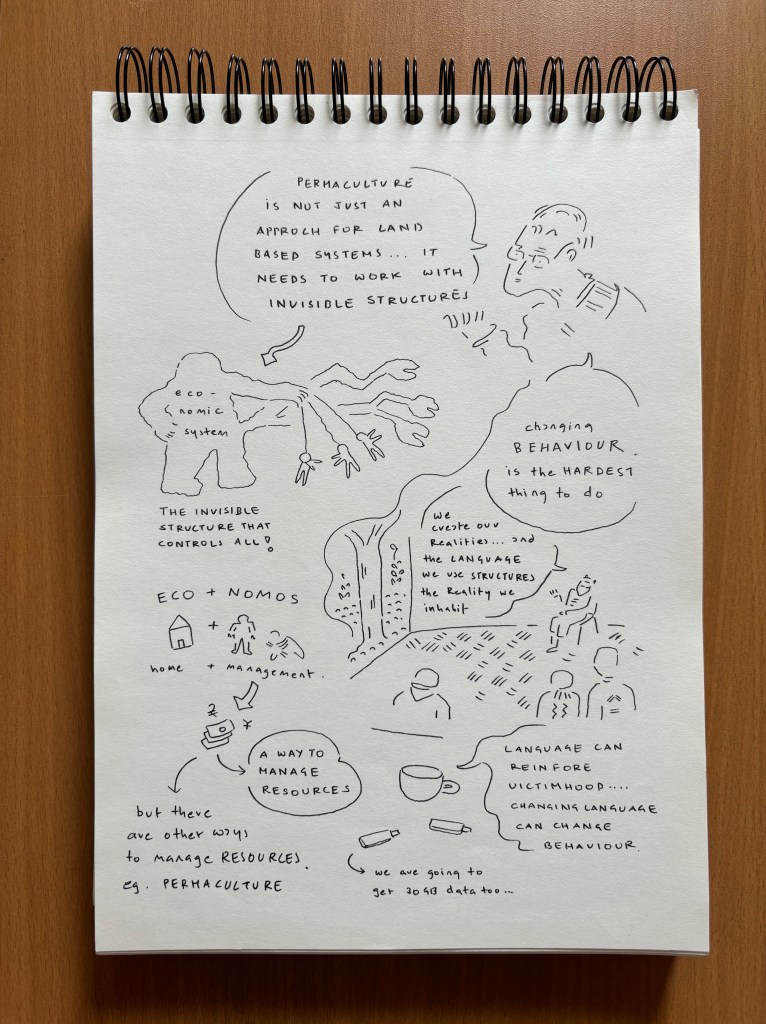 PERMACULTURE
IS NOT JUST AN
APPROCH FOR LAND
BASED SYSTEMS... IT
NEEDS TO WORK WITH
INVISIBLE STRUCTURES
eco-
nomic
system
THE INVISIBLE
STRUCTURE THAT
CONTROLS ALL!
changing
BEHAVIOUR.
is the HARDEST
thing to do
we
create our
Realities... and
the LANGUAGE
we use STRUCTURES
the Reality we
inhabit
ECO + NOMOS
+
home + management.
¥
A WAY TO
MANAGE
RESOURCES
but there
are other ways
to manage RESOURCES.
eg. PERMACULTURE
LANGUAGE CAN
REINFORE
VICTIMHOOD....
CHANGING LANGUAGE
CAN CHANGE
BEHAVIOUR.
we are going to
get 30GB data too...